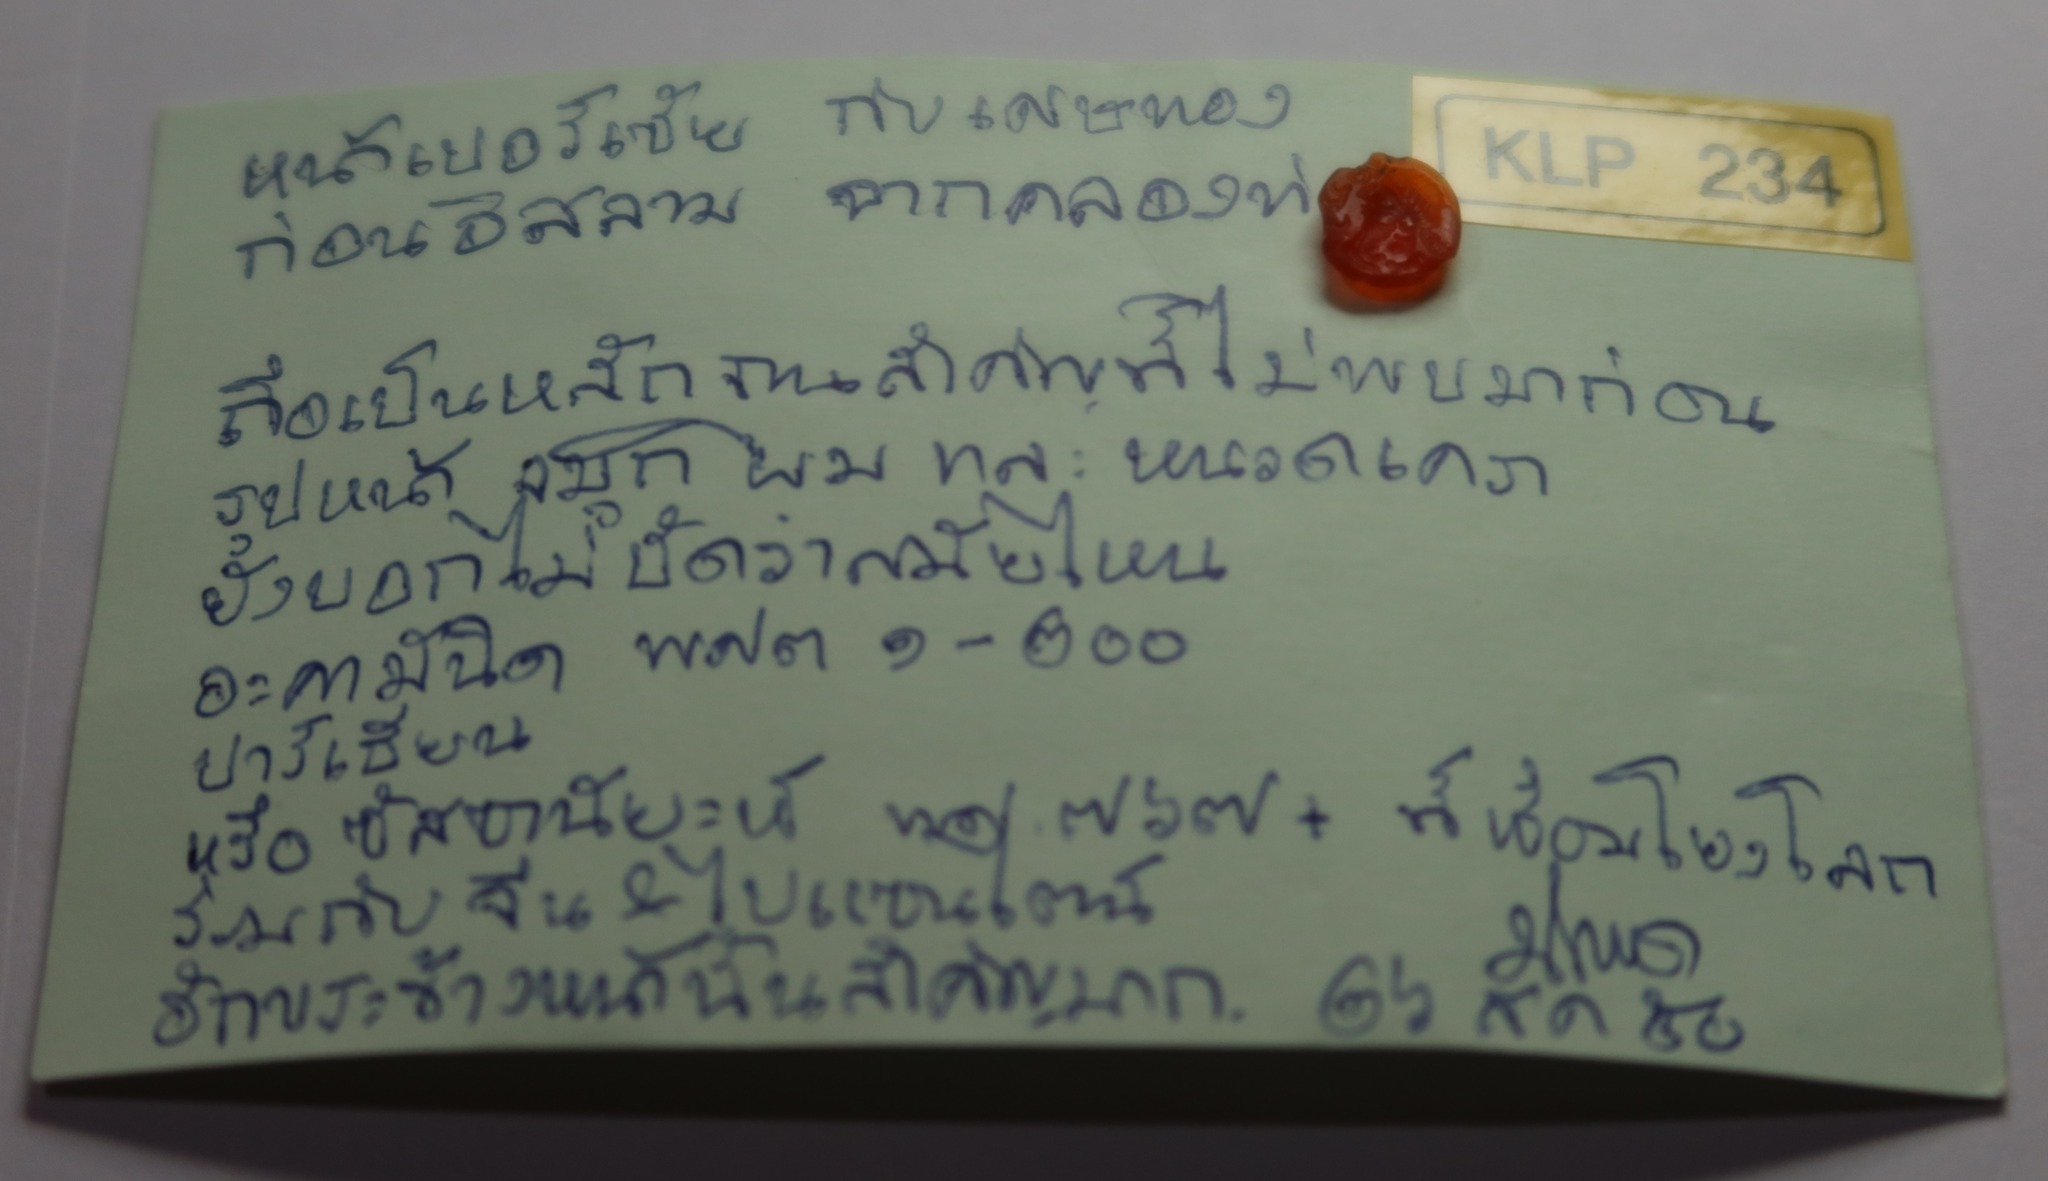 หน้าเปอร์เซีย กับเศษทอง
KLP 234
ก่อนอิสลาม จากคลองท่
ถือเป็นหลักฐานสำคัญที่ไม่พบมาก่อน
รูปหน้า จมูก ผม และ หนวดเครา
ยังบอกไม่ชัดว่าสมัยไหน
อะคามินิด พศต ๑-๒๐๐
ปาร์เธียน
หรือ ซัสซานิยะห์ ๗๖๗+ ที่เชื่อมโยงโลก
ร่วมกับ จีน & ไบแซนไตน์
อักขระข้างหน้านั้นสำคัญมาก. ๒๖ สค ๕๐